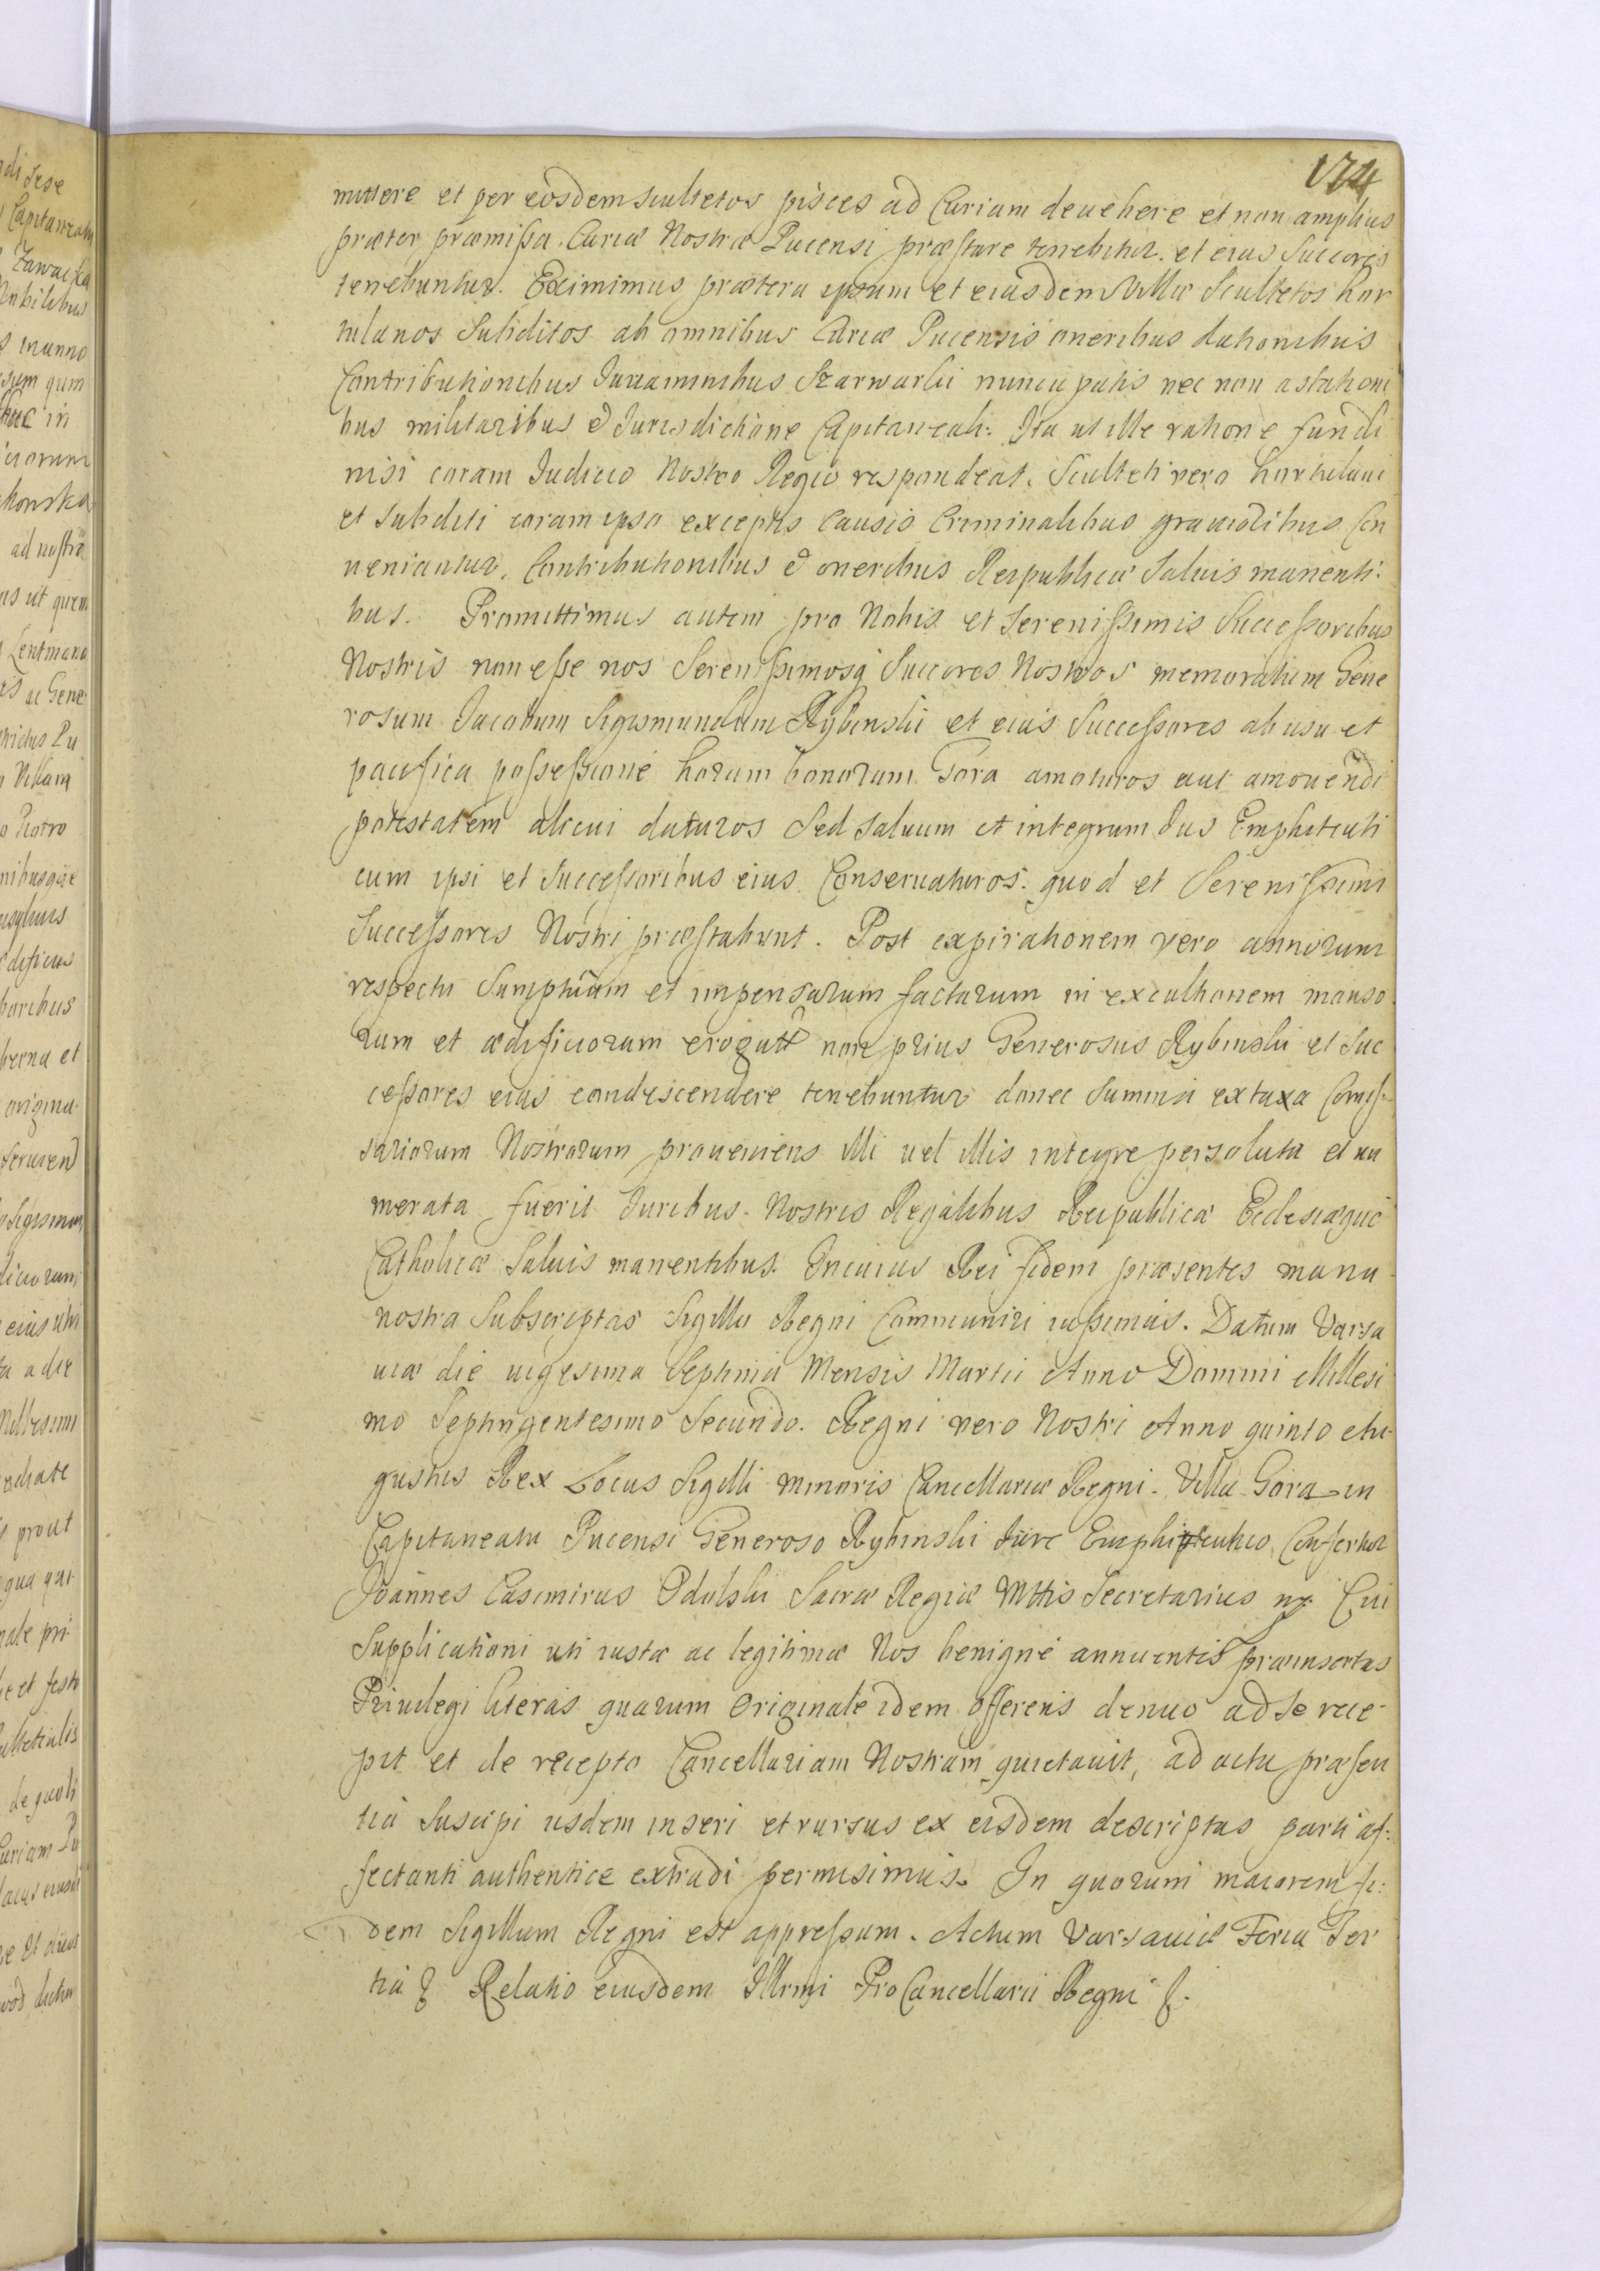 174
mittere et per eosdem scultetos pisces ad Curiam deuehere et non amplius
præter præmissa Curiæ Nostræ Pucensi præstare tenebitur. et eius Succores
tenebuntur. Eximimus prætera ipsum et eiusdem Villæ Scultetos hor
tulanos Subditos ab omnibus Curiæ Pucensis oneribus dationibus
Contributionibus Juuaminibus Szarwarki nuncupatis nec non a stationi
bus militaribus & Jurisdictione Capitaneali: Ita ut ille ratione fundi
nisi coram Judicio Nostro Regio respondeat. Sculteti vero hortulani
et Subditi coram ipso exceptis Causis Criminalibus grauioribus Con
ueniantur. Contributionibus & oneribus Reipublicæ Saluis manenti:
bus. Promittimus autem pro Nobis et Serenissimis Successoribus
Nostris non esse nos Serenissimosq Succores Nostros memoratum Gene
rosum Jacobum Sigismundum Rybinski et eius Successores ab usu et
pacifica possessione horum bonorum Gora amoturos aut amouendi
potestatem alicui daturos Sed saluum et integrum Jus Emphiteuti
cum ipsi et Successoribus eius Conseruaturos. quod et Serenissimi
Successores Nostri præstabunt. Post expirationem vero annorum
respectu Sumptuum et impensarum factarum in excultionem manso
rum et ædificiorum erogatt non prius Generosus Rybinski et Suc
cessores eius condescendere tenebuntur donec Summa ex taxa Comis=
sariorum Nostrorum proueniens illi uel illis integre persoluta et nu
merata fuerit Juribus Nostris Regalibus Reipublicæ Ecclesiæque
Catholicæ Saluis manentibus. In cuius Rei fidem præsentes manu
nostra Subscriptas Sigillo Regni Communiri iussimus. Datum Varsa
uiæ die uigesima Septima Mensis Martii Anno Domini Millesi
mo Septingentesimo Secundo. Regni vero Nostri Anno quinto Au-
gustus Rex Locus Sigilli minoris Cancellariæ Regni. Villa Gora in
Capitaneatu Pucensi Generoso Rybinski Jure Emphiteutico Confertur
Joannes Casimirus Odulski Sacræ Regiæ Mttis Secretarius Cui
Supplicationi uti iustæ ac legitimæ Nos benigne annuentes præinsertas
Priuilegi literas quarum Originale idem offerens denuo ad se rece-
pit et de recepto Cancellariam Nostram quietauit, ad acta præsen
tia Suscipi iisdem inseri et rursus ex eisdem descriptas parti af-
fectanti authentice extradi permisimus. In quorum maiorem fi:
dem Sigillum Regni est appressum. Actum Varsauiæ Feria Ter
tia Relatio eiusdem Illrmi ProCancellarii Regni